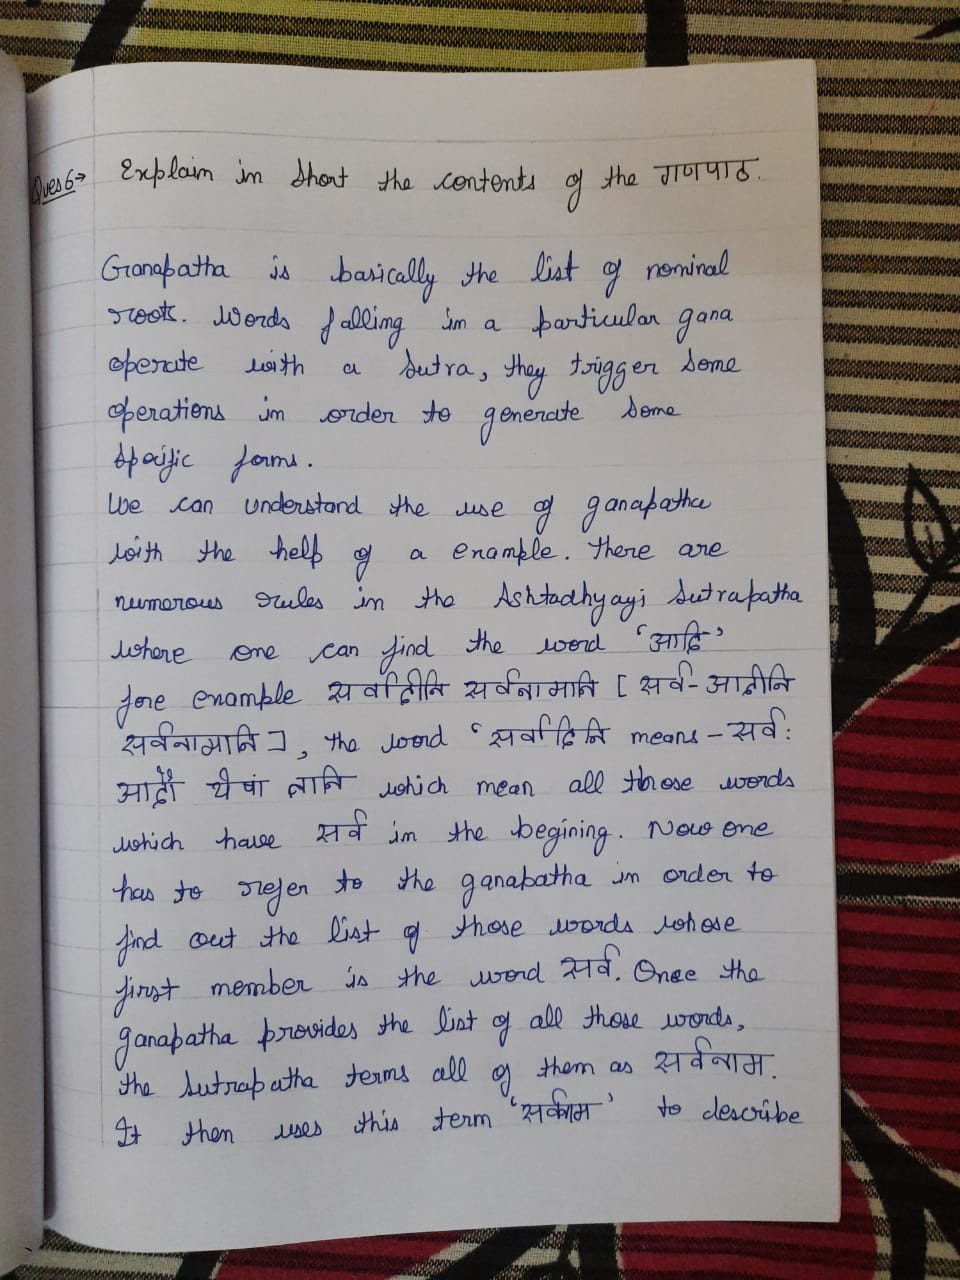 Ques 6→ Explain in short the contents of the गणपाठ.
Ganapatha is basically the list of nominal
roots. Words falling in a particular gana
operate with a sutra, they trigger some
operations in order to generate some
specific forms.
We can understand the use of ganapatha
with the help of a example. There are
numerous rules in the Ashtadhyayi Sutrapatha
where one can find the word 'आदि'
for example सर्वादीनि सर्वनामानि [ सर्व-आदीनि
सर्वनामानि ], the word 'सर्वादिनि means - सर्व:
आदौ येषां तानि which mean all those words
which have सर्व in the begining. Now one
has to refer to the ganapatha in order to
find out the list of those words whose
first member is the word सर्व. Once the
ganapatha provides the list of all those words,
the sutrapatha terms all of them as सर्वनाम.
It then uses this term ' ' to describe